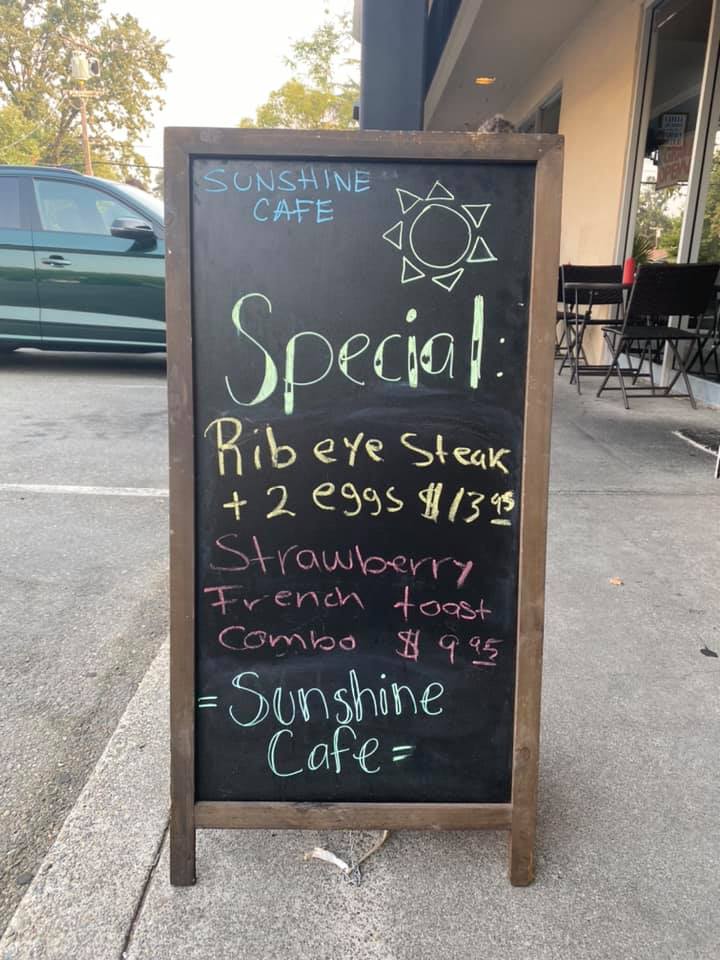 SUNSHINE
CAFE
Special:
Rib eye Steak
+ 2 eggs $13 95
Strawberry
French toast
Combo $ 9 95
= Sunshine
Cafe =